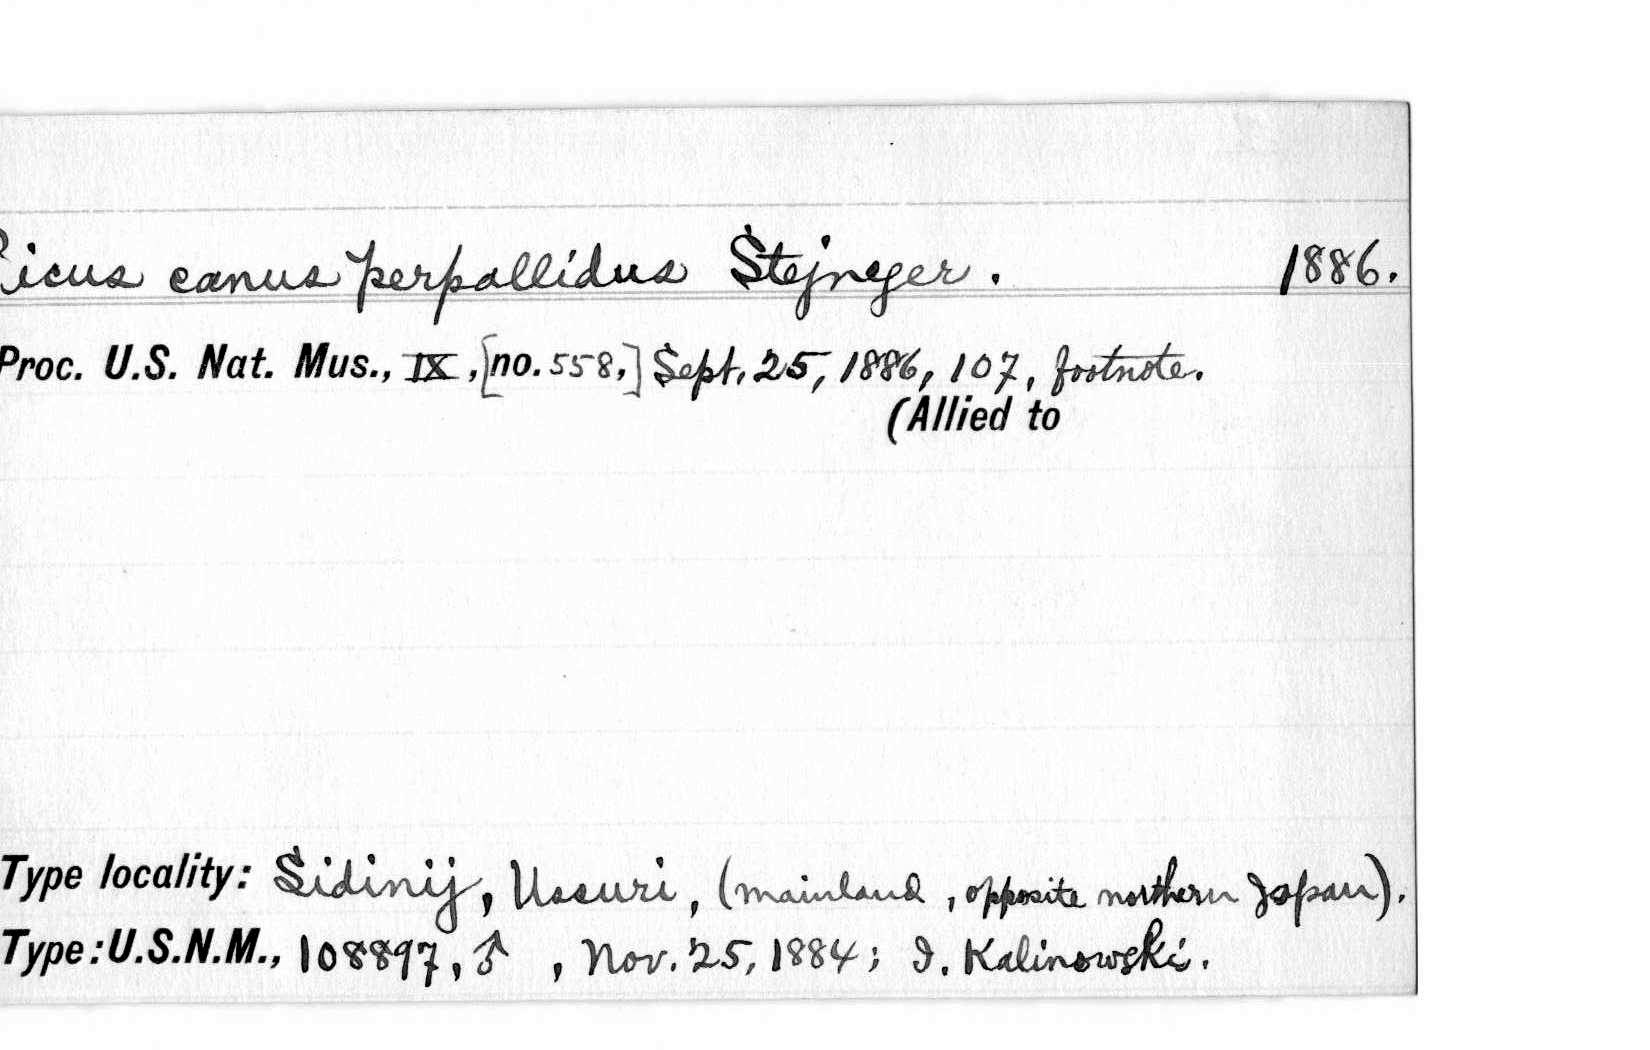 Picus canus perpallidus Stejneger. 1886.
Proc. U.S. Nat. Mus., IX, [no. 558,] Sept. 25, 1886, 107, footnote.
(Allied to
Type locality: Sidinij, Ussuri, (mainland, opposite northern Japan).
Type: U.S.N.M., 108897, ♂, Nov. 25, 1884; J. Kalinowski.